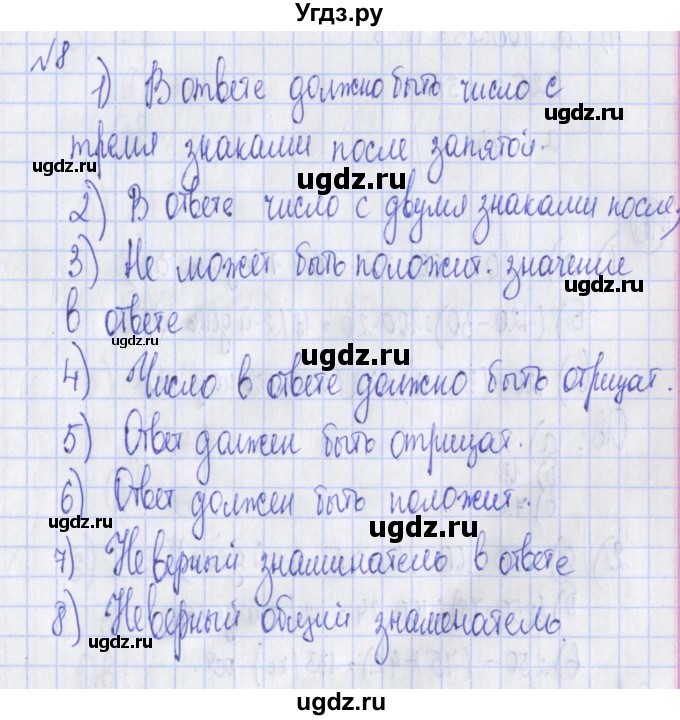 Угдз.ру
№8
1) В ответе должно быть число с
ugdz.ru
ugdz.ru
тремя знаками после запятой.
ugdz.ru
ugdz.ru
2) В ответе число с двумя знаками после,
ugdz.ru
3) Не может быть положит. значение
ugdz.ru
в ответе
ugdz.ru
ugdz.ru
4) Число в ответе должно быть отрицат.
ugdz.ru
5) Ответ должен быть отрицат.
ugdz.ru
6) Ответ должен быть положит.
ugdz.ru
ugdz.ru
7) Неверный знаминатель в ответе
ugdz.ru
8) Неверный общий знаменатель.
ugdz.ru
ugdz.ru
ugdz.ru
ugdz.ru